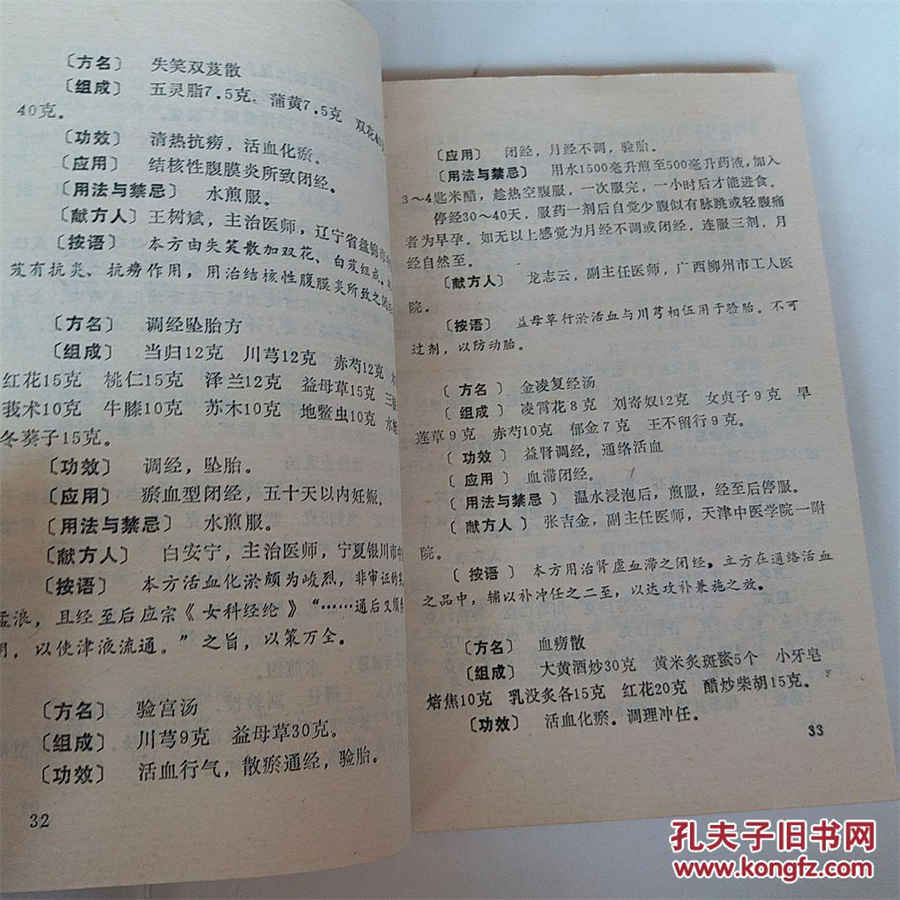 〔方名〕 失笑双芨散
〔组成〕 五灵脂7.5克、蒲黄7.5克 双花40
40克。
〔功效〕 清热抗痨，活血化瘀。
〔应用〕 结核性腹膜炎所致闭经。
〔用法与禁忌〕 水煎服。
〔献方人〕 王树斌，主治医师，辽宁省盘锦
〔按语〕 本方由失笑散加双花、白芨组成。
芨有抗炎、抗痨作用，用治结核性腹膜炎所致之闭
〔方名〕 调经坠胎方
〔组成〕 当归12克 川芎12克 赤芍12克
红花15克 桃仁15克 泽兰12克 益母草15克 三
莪术10克 牛膝10克 苏木10克 地鳖虫10克 水
冬葵子15克。
〔功效〕 调经，坠胎。
〔应用〕 瘀血型闭经，五十天以内妊娠。
〔用法与禁忌〕 水煎服。
〔献方人〕 白安宁，主治医师，宁夏银川市中
〔按语〕 本方活血化淤颇为峻烈，非审证的
孟浪，且经至后应宗《女科经纶》“……通后又须
，以使津液流通。”之旨，以策万全。
〔方名〕 验宫汤
〔组成〕 川芎9克 益母草30克。
〔功效〕 活血行气，散瘀通经，验胎。
32
〔应用〕 闭经，月经不调，验胎。
〔用法与禁忌〕 用水1500毫升煎至500毫升药液，加入
3～4匙米醋，趁热空腹服，一次服完，一小时后才能进食。
停经30～40天，服药一剂后自觉少腹似有脉跳或轻腹痛
者为早孕。如无以上感觉为月经不调或闭经，连服三剂，月
经自然至。
〔献方人〕 龙志云，副主任医师，广西柳州市工人医
院。
〔按语〕 益母草行淤活血与川芎相伍用于验胎。不可
过剂，以防动胎。
〔方名〕 金凌复经汤
〔组成〕 凌霄花8克 刘寄奴12克 女贞子9克 旱
莲草9克 赤芍10克 郁金7克 王不留行9克。
〔功效〕 益肾调经，通络活血
〔应用〕 血滞闭经。
〔用法与禁忌〕 温水浸泡后，煎服，经至后停服。
〔献方人〕 张吉金，副主任医师，天津中医学院一附
院。
〔按语〕 本方用治肾虚血滞之闭经。立方在通络活血
之品中，辅以补冲任之二至，以达攻补兼施之效。
〔方名〕 血痨散
〔组成〕 大黄酒炒30克 黄米炙斑蝥5个 小牙皂
焙焦10克 乳没炙各15克 红花20克 醋炒柴胡15克。
〔功效〕 活血化瘀。调理冲任。
33
孔夫子旧书网
www.kongfz.com